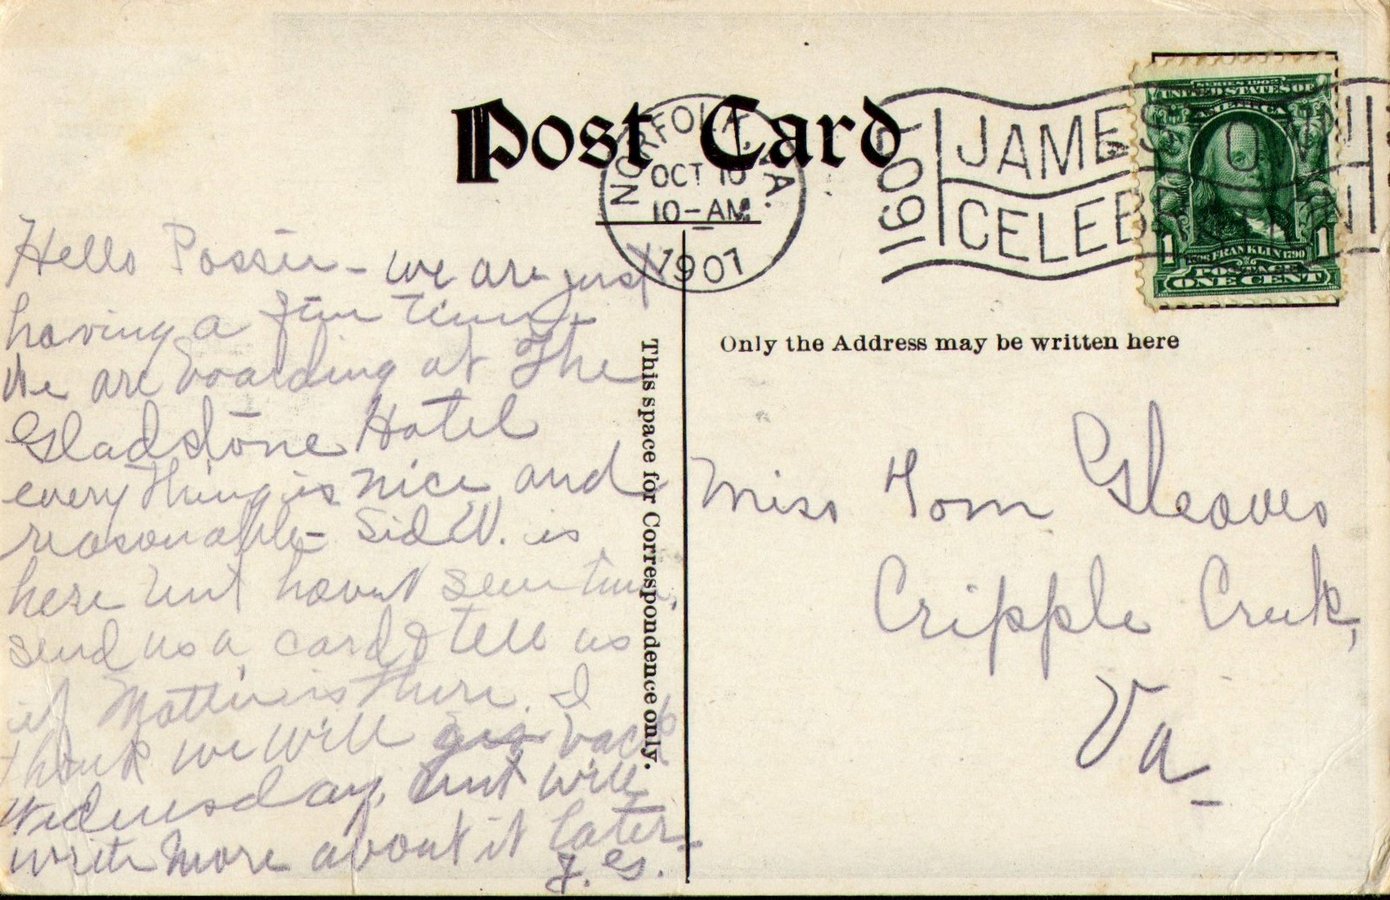 Post Card
NORFOLK, VA.
OCT 10
10-AM
1907
1607
JAMES
CELEB
1907
SERIES 1902
UNITED STATES OF
AMERICA
1 FRANKLIN 1790 1
POSTAGE
ONE CENT
This space for Correspondence only.
Only the Address may be written here
Hello Possir - we are just
having a fine time.
We are boarding at the
Gladstone Hotel
everything is nice and
reasonable - Sid W. is
here but havent seen him.
send us a card & tell us
if Mattie is there. I
think we will go back
Wednesday, but will
write more about it later.
Miss Tom Gleaves
Cripple Creek,
Va -